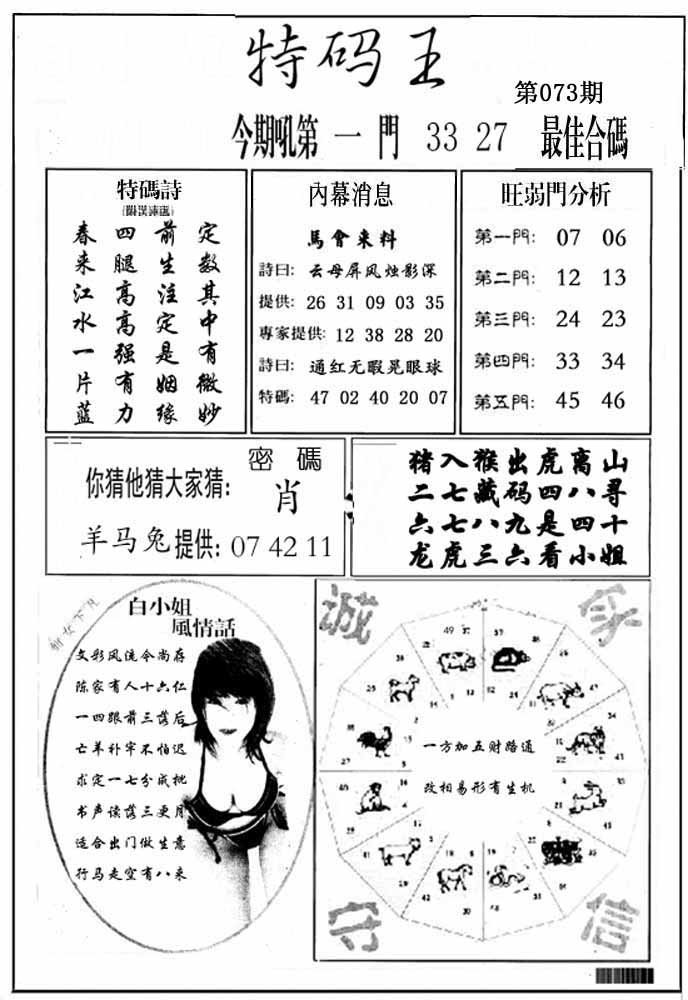 特码王
第073期
今期吼第一門 33 27 最佳合碼
特碼詩
春四前定
来腿生数
江高注其
水高定中
一强是有
片有姻微
蓝力缘妙
內幕消息
馬會来料
詩曰: 云母屏风烛影深
提供: 26 31 09 03 35
專家提供: 12 38 28 20
詩曰: 通红无暇晃眼球
特碼: 47 02 40 20 07
旺弱門分析
第一門: 07 06
第二門: 12 13
第三門: 24 23
第四門: 33 34
第五門: 45 46
密碼
你猜他猜大家猜: 肖
羊马兔提供: 07 42 11
猪入猴出虎离山
二七藏码四八寻
六七八九是四十
龙虎三六看小姐
白小姐
風情話
文彩风流今尚存
陈家有人十六仁
一四跟前三落后
亡羊补牢不怕迟
求定一七分成批
书声读落三更月
适合出门做生意
行马走空有八来
诚
守
信
一方加五财路通
改相易形有生机